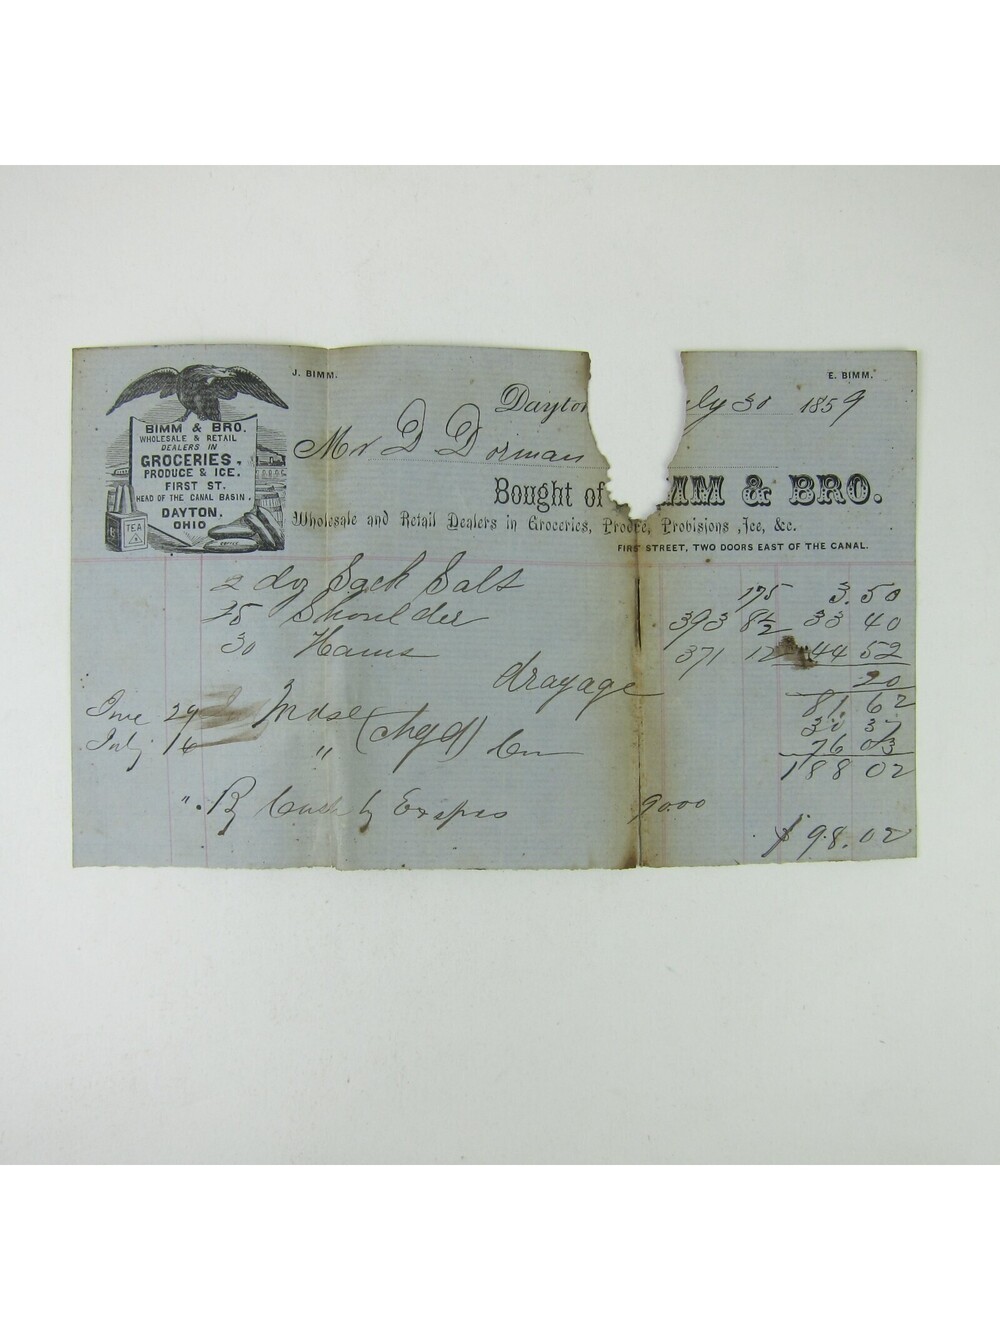 J. BIMM.
E. BIMM.
BIMM & BRO.
WHOLESALE & RETAIL
DEALERS IN
GROCERIES,
PRODUCE & ICE.
FIRST ST.
HEAD OF THE CANAL BASIN.
DAYTON.
OHIO
TEA
Dayto ly 30 1859
Mr D Dorman
Bought of MM & BRO.
Wholesale and Retail Dealers in Groceries, Prod e, Provisions, Ice, &c.
FIRS STREET, TWO DOORS EAST OF THE CANAL.
2 doz Sack Salt 175 3.50
Shoulder 393 8½ 33 40
30 Hams 371 12 44 52
drayage 20
81.62
June 29 Mdse (chgd) 30 37
July 16 " 76 03
188 02
" . By Cash 90.00
$98.02